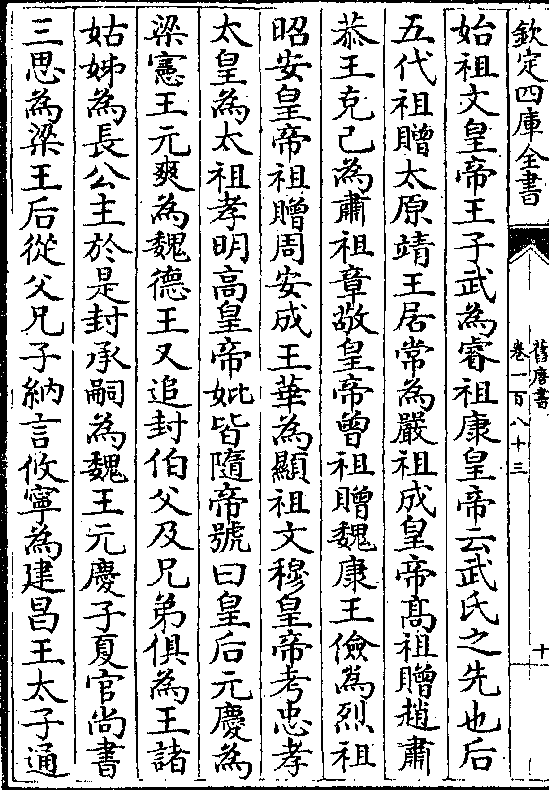 欽定四庫全書
舊唐書
卷一百八十三
十一
始祖文皇帝王子武為睿祖康皇帝云武氏之先也后
五代祖贈太原靖王居常為嚴祖成皇帝髙祖贈趙肅
恭王克己為肅祖章敬皇帝曾祖贈魏康王儉為烈祖
昭安皇帝祖贈周安成王華為顯祖文穆皇帝考忠孝
太皇為太祖孝明高皇帝妣皆隨帝號曰皇后元慶為
梁憲王元爽為魏德王又追封伯父及兄弟俱為王諸
姑姊為長公主於是封承嗣為魏王元慶子夏官尚書
三思為梁王后從父兄子納言攸寧為建昌王太子通